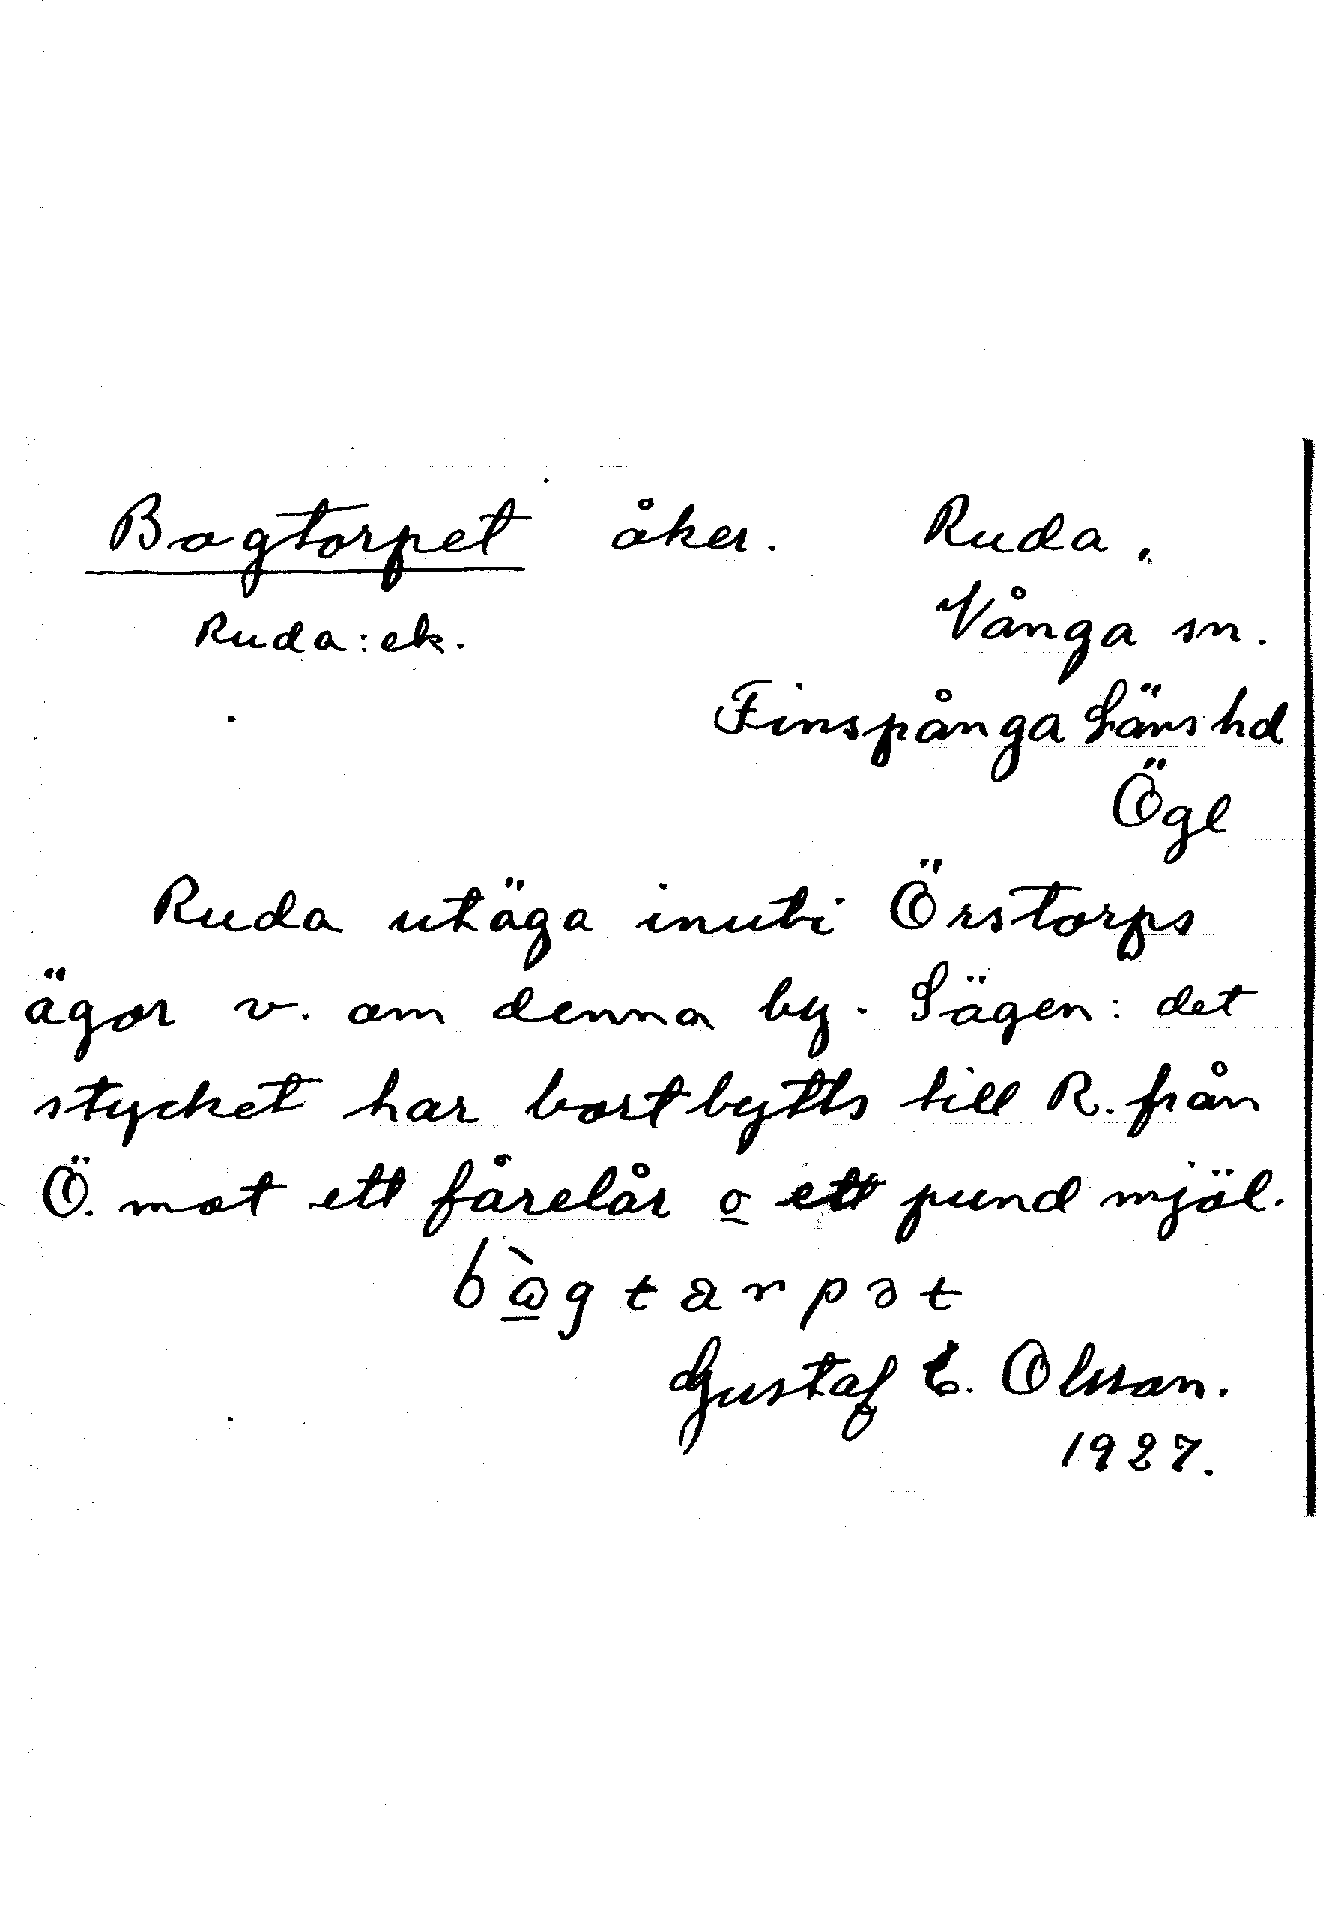 Bogtorpet åker. Ruda.
Ruda: ek. Vånga sn.
Finspånga läns hd
Ögl
Ruda utäga inuti Örstorps
ägor v. om denna by. Sägen: det
stycket har bortbytts till R. från
Ö. mot ett fårelår o ett pund mjöl.
Gustaf E. Olsson.
1927.